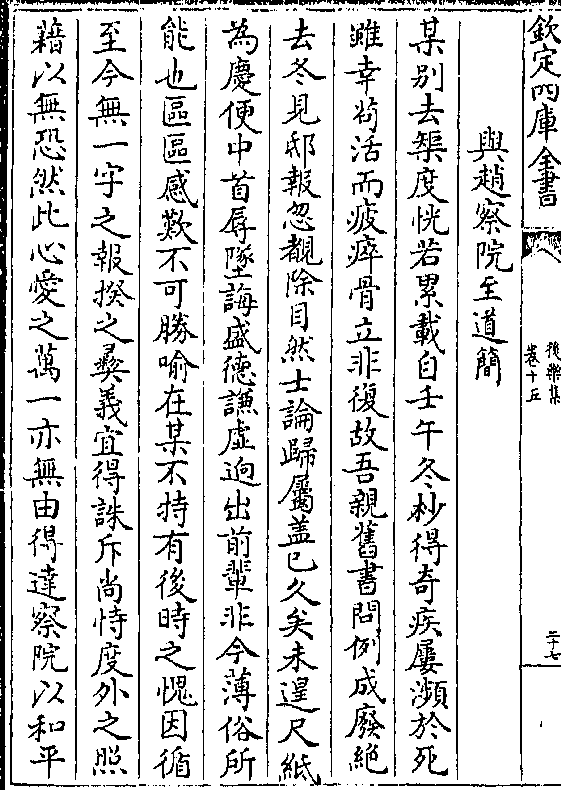 欽定四庫全書
後樂集
卷十五
二十七
與趙察院至道簡
某别去榘度恍若累載自壬午冬杪得奇疾屢瀕於死
雖幸茍活而疲瘁骨立非復故吾親舊書問例成廢絶
去冬見邸報忽覩除目然士論歸屬盖已久矣未遑尺紙
為慶便中首辱墜誨盛德謙虛逈出前輩非今薄俗所
能也區區感歎不可勝喻在某不特有後時之愧因循
至今無一字之報揆之彞義宜得誅斥尚恃度外之照
藉以無恐然此心愛之萬一亦無由得達察院以和平